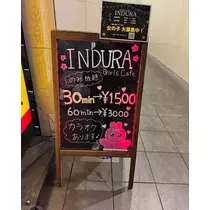 INDURA
女の子大募集中!
INDURA
Girls Cafe
飲み放題
30min→¥1500
60min→¥3000
カラオケ
あります